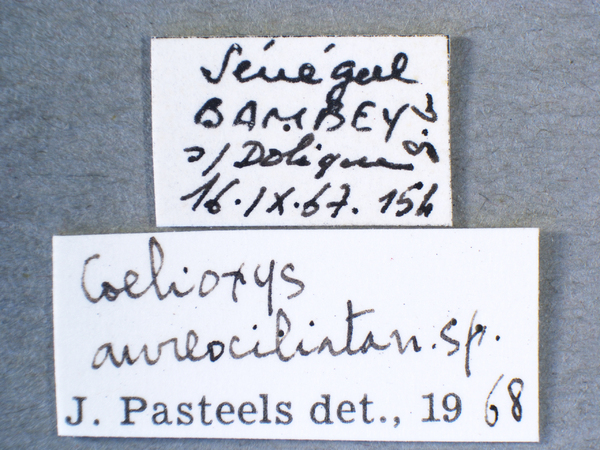 Sénégal
BAMBEY
s/Dolique
16.IX.67. 15h
Coelioxys
aureociliata n.sp.
J. Pasteels det., 1968